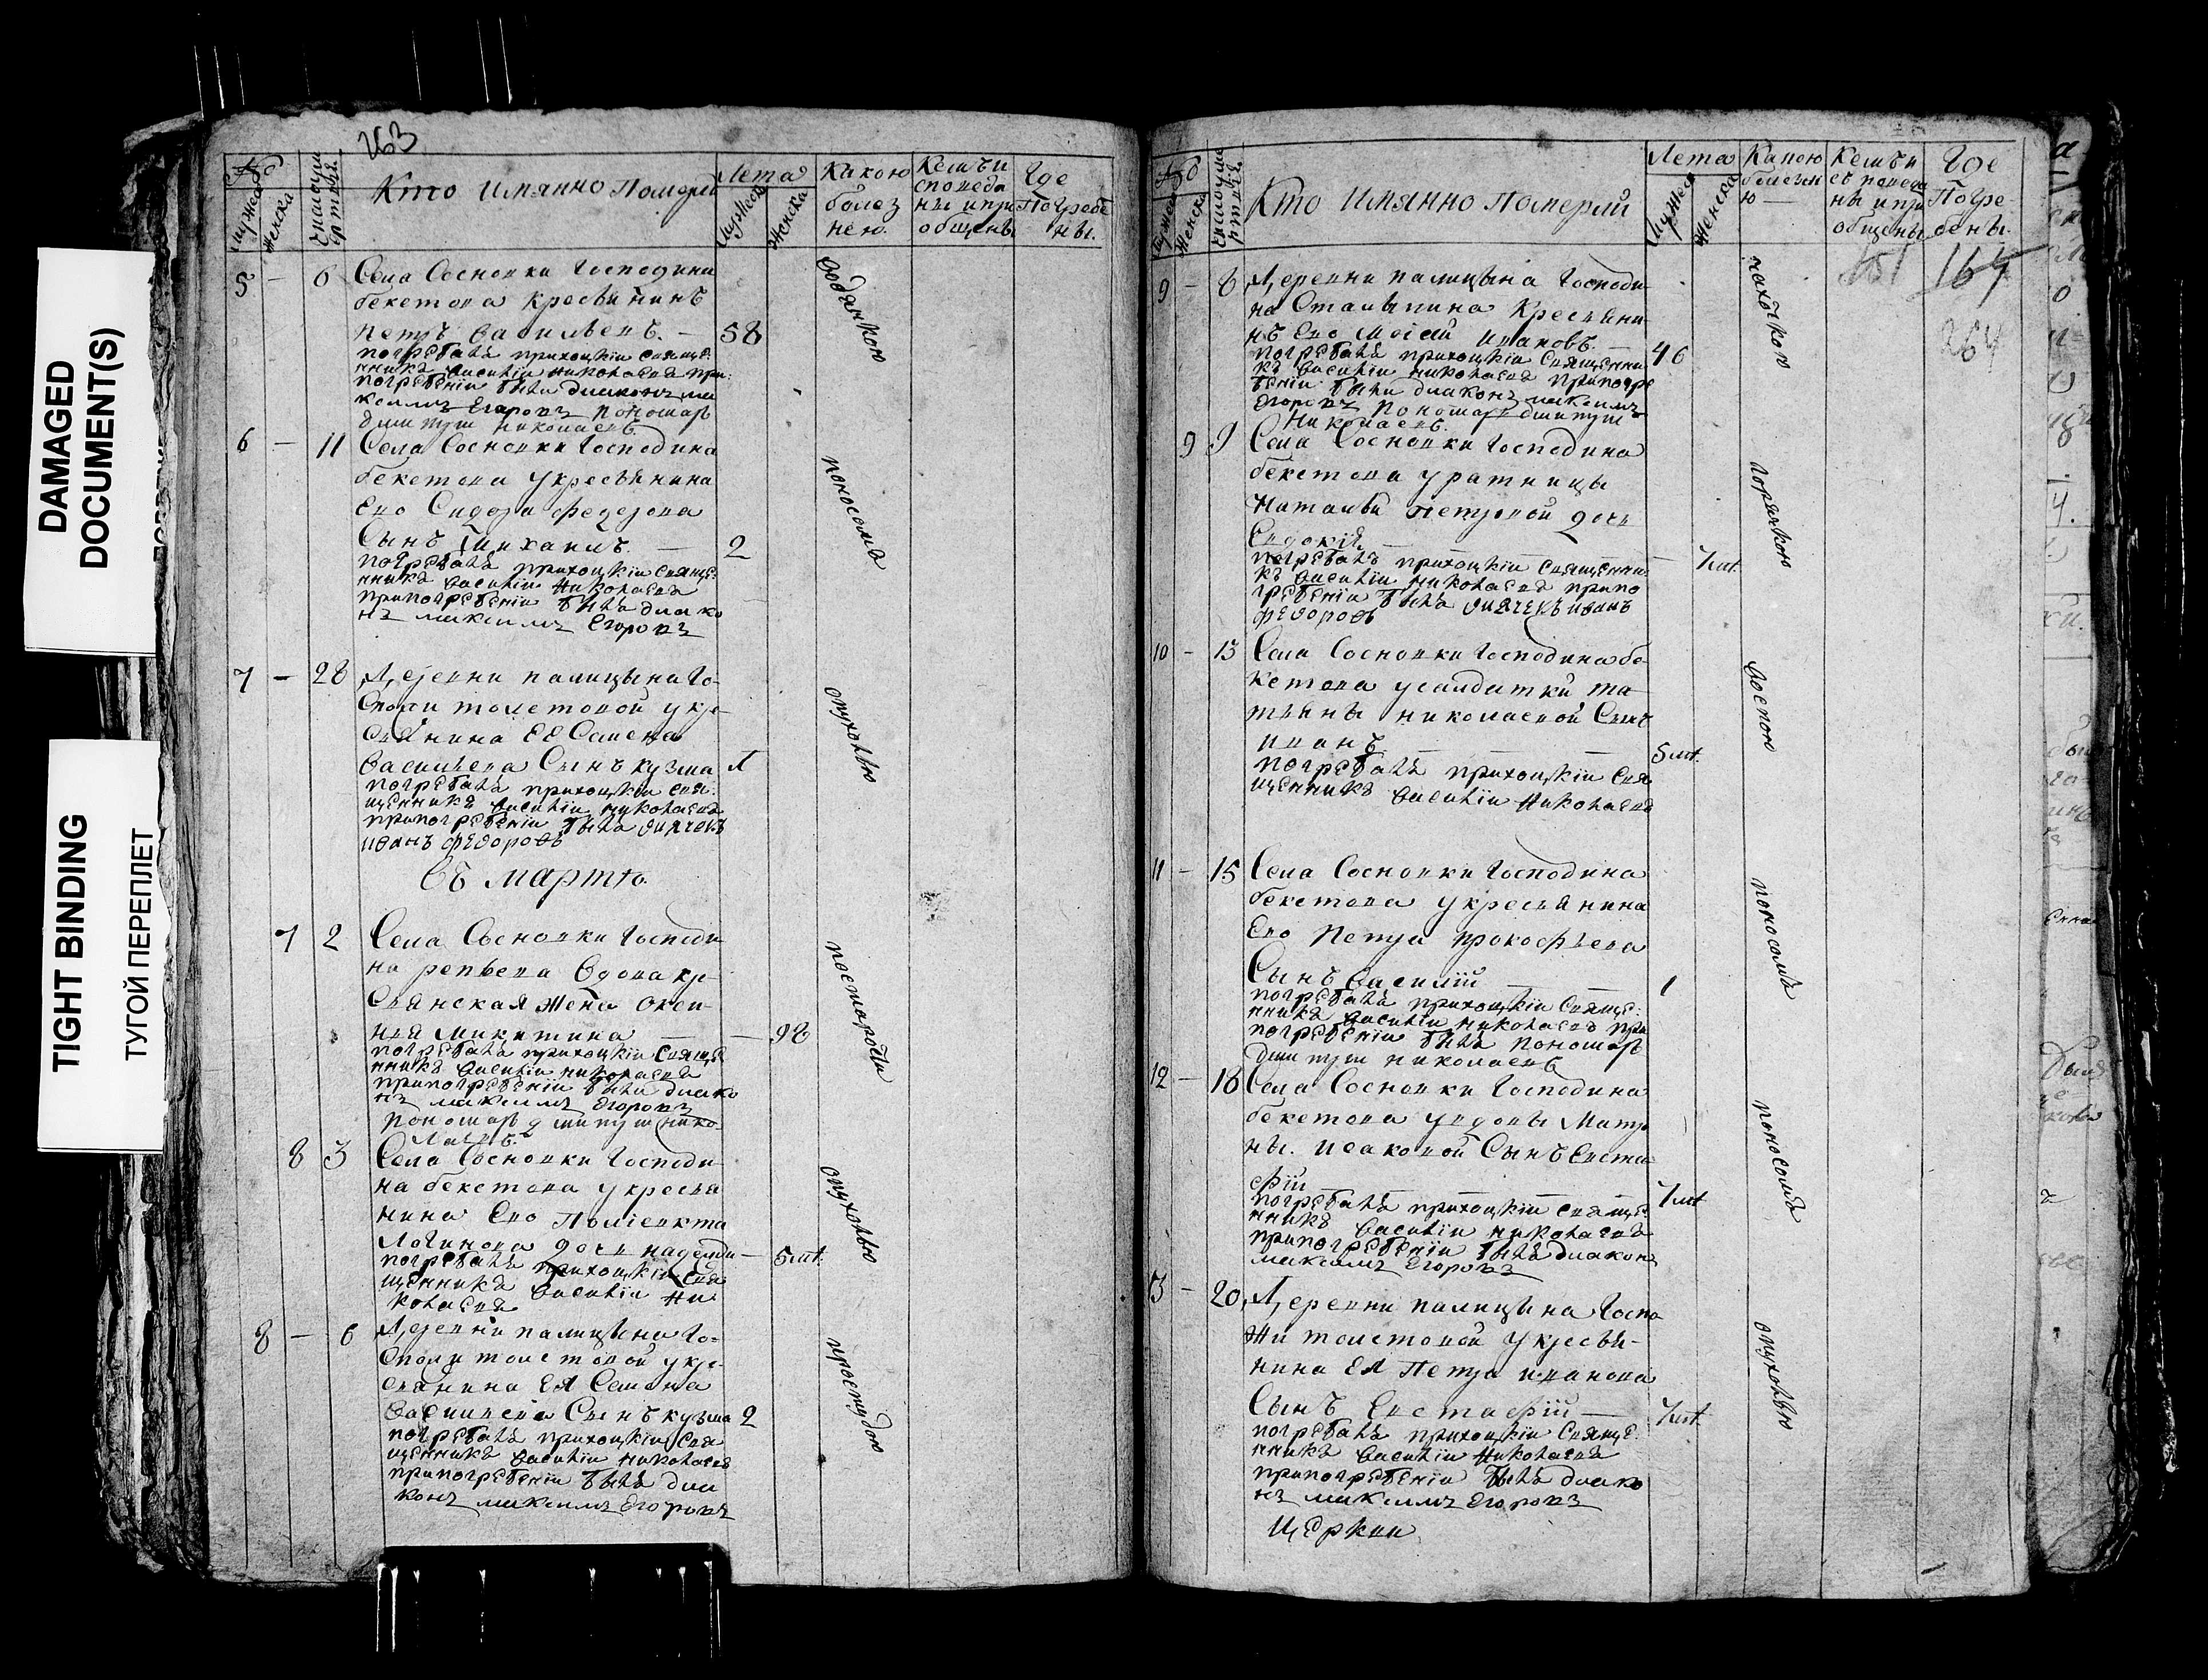 DAMAGED
DOCUMENT(S)
TIGHT BINDING
ТУГОЙ ПЕРЕПЛЕТ
263
№
мужеска
женска
Число умертвiя
Кто Имянно Померли
Лета
мужеска
женска
Какою
болез
нею
Кемъ и
споведа
ны и при
общены
Где
Погребе
ны.
5 — 6 Села Сосновки Господина
бекетова Кресьянинъ
Петръ Васильевъ. — 58 водянкою
погребалъ приходскiй Свяще:
нникъ Василiй Николаевъ при
погребенiи были диаконъ ма
ксимъ Егоровъ Пономарь
дмитрiй николаевъ
6 — 11 Села Сосновки Господина
бекетова у кресьянина
Ево Сидора федорова
Сынъ Михаилъ. — 2 поносомъ
погребалъ приходскiй Свяще:
нникъ Василiй Николаевъ
при погребенiи былъ диако
нъ максимъ Егоровъ
7 — 28 Деревни палицына Го-
Спожи толстовой у кре-
сьянина ЕЕ Семена
Васильева Сынъ кузма 1 опухолью
погребалъ приходскiй свя:
щенникъ Василiй Николаевъ
при погребенiи былъ дьячекъ
иванъ федоровъ
Въ Марте.
7 2 Села Сосновки Господи
на репьева Вдова кр-
Сьянская Жена Окси-
нья Микитина — — 98 постарости
погребалъ приходскiй Свяще
нникъ Василiй Николаевъ
при погребенiи были диако
нъ максимъ Егоровъ
пономарь дмитрiй нико-
лаевъ.
8 3 Села Сосновки Господи
на бекетова у кресья
нина Ево Полиевкта
Логинова дочь надежди— 5 мт. опухолью
погребалъ приходскiй Свя
щенникъ Василiй Ни
колаевъ
8 — 6 Деревни палицына Го-
Спожи толстовой у кре-
сьянина ЕЯ Семена
Васильева Сынъ кузма 2 простудою
погребалъ приходскiй Свя
щенникъ Василiй Николаевъ
при погребенiи былъ диа
конъ максимъ Егоровъ
№
мужеска
Женска
Число умертвiя
Кто Имянно Померли
Лета
мужеска
Женска
Какою
болезни
ю —
Кемъ и
споведа
ны и при
общены
Где
Погре-
бены.
151 164
264
9 — 8 Деревни палицына Господи-
на Столыпина Кресьяни-
нъ Ево Моiсей Ивановъ. — 46 чахоткою
погребалъ приходскiй Священни
къ Василiй Николаевъ при погре
бенiи были диаконъ максимъ
Егоровъ Пономарь дмитрiй
Николаевъ.
9 9 Села Сосновки Господина
бекетова у ратницы
Натальи Петровой дочь
Евдокiя — 7 мт. горячкою
погребалъ приходскiй священни
къ Василiй Николаевъ при по
гребенiи былъ дьячекъ иванъ
федоровъ
10 — 13 Села Сосновки Господина бе-
кетова у салдатки та-
тьяны николаевой Сынъ
Иванъ — — 5 мт. воспою
погребалъ приходскiй Свя
щенникъ Василiй Николаевъ
11 — 15 Села Сосновки Господина
бекетова у кресьянина
Ево Петра прокофьева
Сынъ Василiй — — 1 поносомъ
погребалъ приходскiй Свяще:
нникъ Василiй Николаевъ при
погребенiи былъ пономарь
дмитрiй николаевъ
12 — 16 Села Сосновки Господина
бекетова у вдовы Матре
ны. исаковой Сынъ Евста
фiй — — 7 мт поносомъ
погребалъ приходскiй свяще:
нникъ Василiй Николаевъ
при погребенiи былъ диаконъ
максимъ Егоровъ
13 — 20 Деревни палицына Госпо
жи толстовой у кресья-
нина ЕЯ Петра иванова
Сынъ Евстафiй — 7 мт. опухолью
погребалъ приходскiй Свяще:
нникъ Василiй Николаевъ
при погребенiи былъ диако
нъ максимъ Егоровъ
Церкви